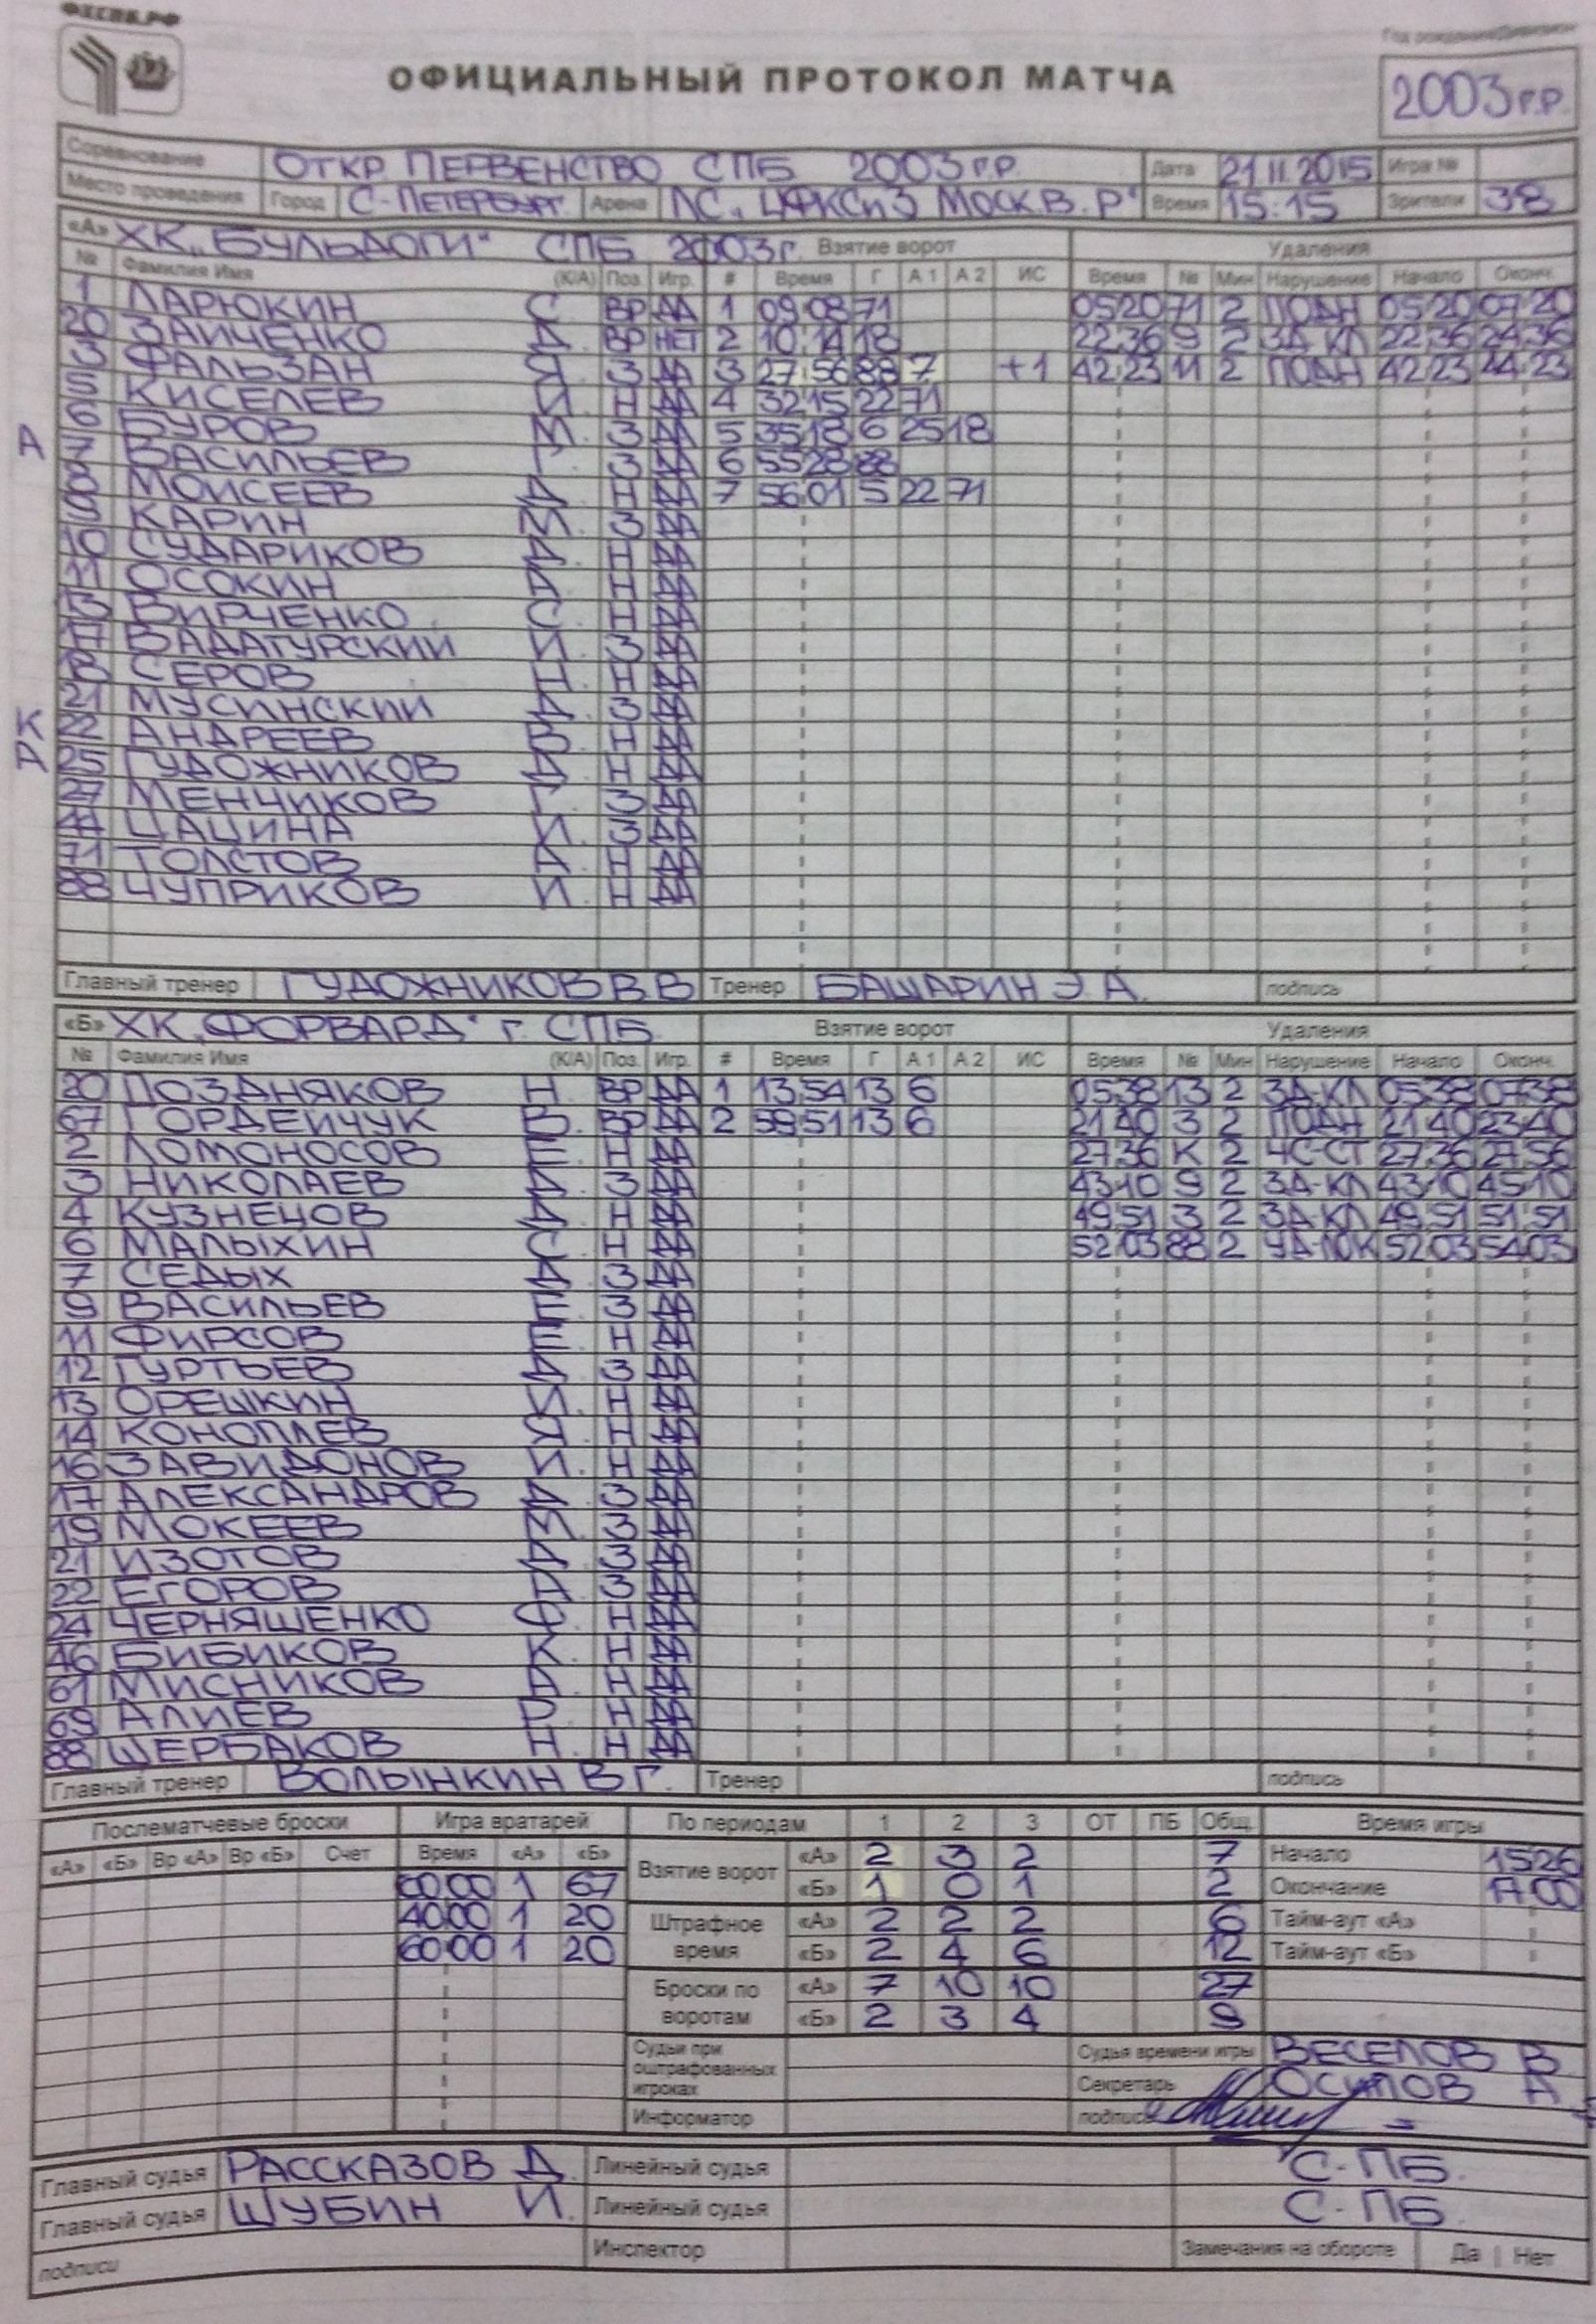 ФХСПБ.РФ
Год рождения/Дивизион
ОФИЦИАЛЬНЫЙ ПРОТОКОЛ МАТЧА
2003 г.р.
Соревнование ОТКР. ПЕРВЕНСТВО СПБ 2003 г.р. Дата 21 11.2015 Игра №
Место проведения Город С-ПЕТЕРБУРГ. Арена ЛС. ЦФКСиЗ МОСК.В. Р" Время 15:15 Зрители 38
«А» ХК „БУЛЬДОГИ" СПБ 2003г. Взятие ворот Удаления
№ Фамилия Имя (К/А) Поз. Игр. # Время Г А1 А2 ИС Время № Мин Нарушение Начало Оконч.
1 ЛАРЮКИН С. ВР ДА 1 09 08 71 05 20 71 2 ПОДН 05 20 07 20
20 ЗАИЧЕНКО Д. ВР НЕТ 2 10 14 18 22 36 9 2 ЗД-КЛ 22 36 24 36
3 ФАЛЬЗАН Я. З ДА 3 27 56 88 7 +1 42 23 11 2 ПОДН 42 23 44 23
5 КИСЕЛЕВ И. Н ДА 4 32 15 22 71
6 БУРОВ М. З ДА 5 35 18 6 25 18
А 7 ВАСИЛЬЕВ Г. З ДА 6 55 28 88
8 МОИСЕЕВ Д. Н ДА 7 56 01 5 22 71
9 КАРИН М. З ДА
10 СУДАРИКОВ Д. Н ДА
11 ОСОКИН А. Н ДА
13 ВИРЧЕНКО С. Н ДА
17 ВАДАТУРСКИЙ И. З ДА
18 СЕРОВ Н. Н ДА
21 МУСИНСКИЙ Д. З ДА
К 22 АНДРЕЕВ В. Н ДА
А 25 ГУДОЖНИКОВ Д. Н ДА
27 МЕНЧИКОВ Г. З ДА
44 ЦАЦИНА И. З ДА
71 ТОЛСТОВ А. Н ДА
88 ЧУПРИКОВ И. Н ДА
Главный тренер ГУДОЖНИКОВ В В Тренер БАШАРИН Э. А. подпись
«Б» ХК „ФОРВАРД" г. СПБ. Взятие ворот Удаления
№ Фамилия Имя (К/А) Поз. Игр. # Время Г А1 А2 ИС Время № Мин Нарушение Начало Оконч.
20 ПОЗДНЯКОВ Н. ВР ДА 1 13 54 13 6 05 38 13 2 ЗД-КЛ 05 38 07 38
67 ГОРДЕЙЧУК В. ВР ДА 2 59 51 13 6 21 40 3 2 ПОДН 21 40 23 40
2 ЛОМОНОСОВ Е. Н ДА 27 36 К 2 ЧС-СТ 27 36 27 56
3 НИКОЛАЕВ Д. З ДА 43 10 9 2 ЗД-КЛ 43 10 45 10
4 КУЗНЕЦОВ Д. Н ДА 49 51 3 2 ЗД-КЛ 49 51 51 51
6 МАЛЫХИН С. Н ДА 52 03 88 2 УД-ЛОК 52 03 54 03
7 СЕДЫХ Д. З ДА
9 ВАСИЛЬЕВ Е. З ДА
11 ФИРСОВ Е. Н ДА
12 ГУРТЬЕВ Д. З ДА
13 ОРЕШКИН И. Н ДА
14 КОНОПЛЕВ Я. Н ДА
16 ЗАВИДОНОВ И. Н ДА
17 АЛЕКСАНДРОВ Д. З ДА
19 МОКЕЕВ М. З ДА
21 ИЗОТОВ Д. З ДА
22 ЕГОРОВ А. З ДА
24 ЧЕРНЯШЕНКО Ф. Н ДА
46 БИБИКОВ К. Н ДА
61 МИСНИКОВ А. Н ДА
69 АЛИЕВ Р. Н ДА
88 ЩЕРБАКОВ Н. Н ДА
Главный тренер ВОЛЫНКИН В Г. Тренер подпись
Послематчевые броски Игра вратарей По периодам 1 2 3 ОТ ПБ Общ. Время игры
«А» «Б» Вр «А» Вр «Б» Счет Время «А» «Б» Взятие ворот «А» 2 3 2 7 Начало 15 26
00 00 1 67 «Б» 1 0 1 2 Окончание 17 00
40 00 1 20 Штрафное время «А» 2 2 2 6 Тайм-аут «А»
60 00 1 20 «Б» 2 4 6 12 Тайм-аут «Б»
Броски по воротам «А» 7 10 10 27
«Б» 2 3 4 9
Судьи при оштрафованных игроках Судья времени игры ВЕСЕЛОВ В
Секретарь ОСИПОВ А
Информатор подпись
Главный судья РАССКАЗОВ Д. Линейный судья С-ПБ.
Главный судья ШУБИН И. Линейный судья С-ПБ.
подписи Инспектор Замечания на обороте Да | Нет